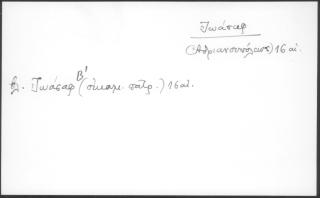 Ἰωάσαφ
(Ἀδριανουπόλεως) 16 αἰ.
Δ. Ἰωάσαφ Β' (οἰκουμ. πατρ.) 16 αἰ.